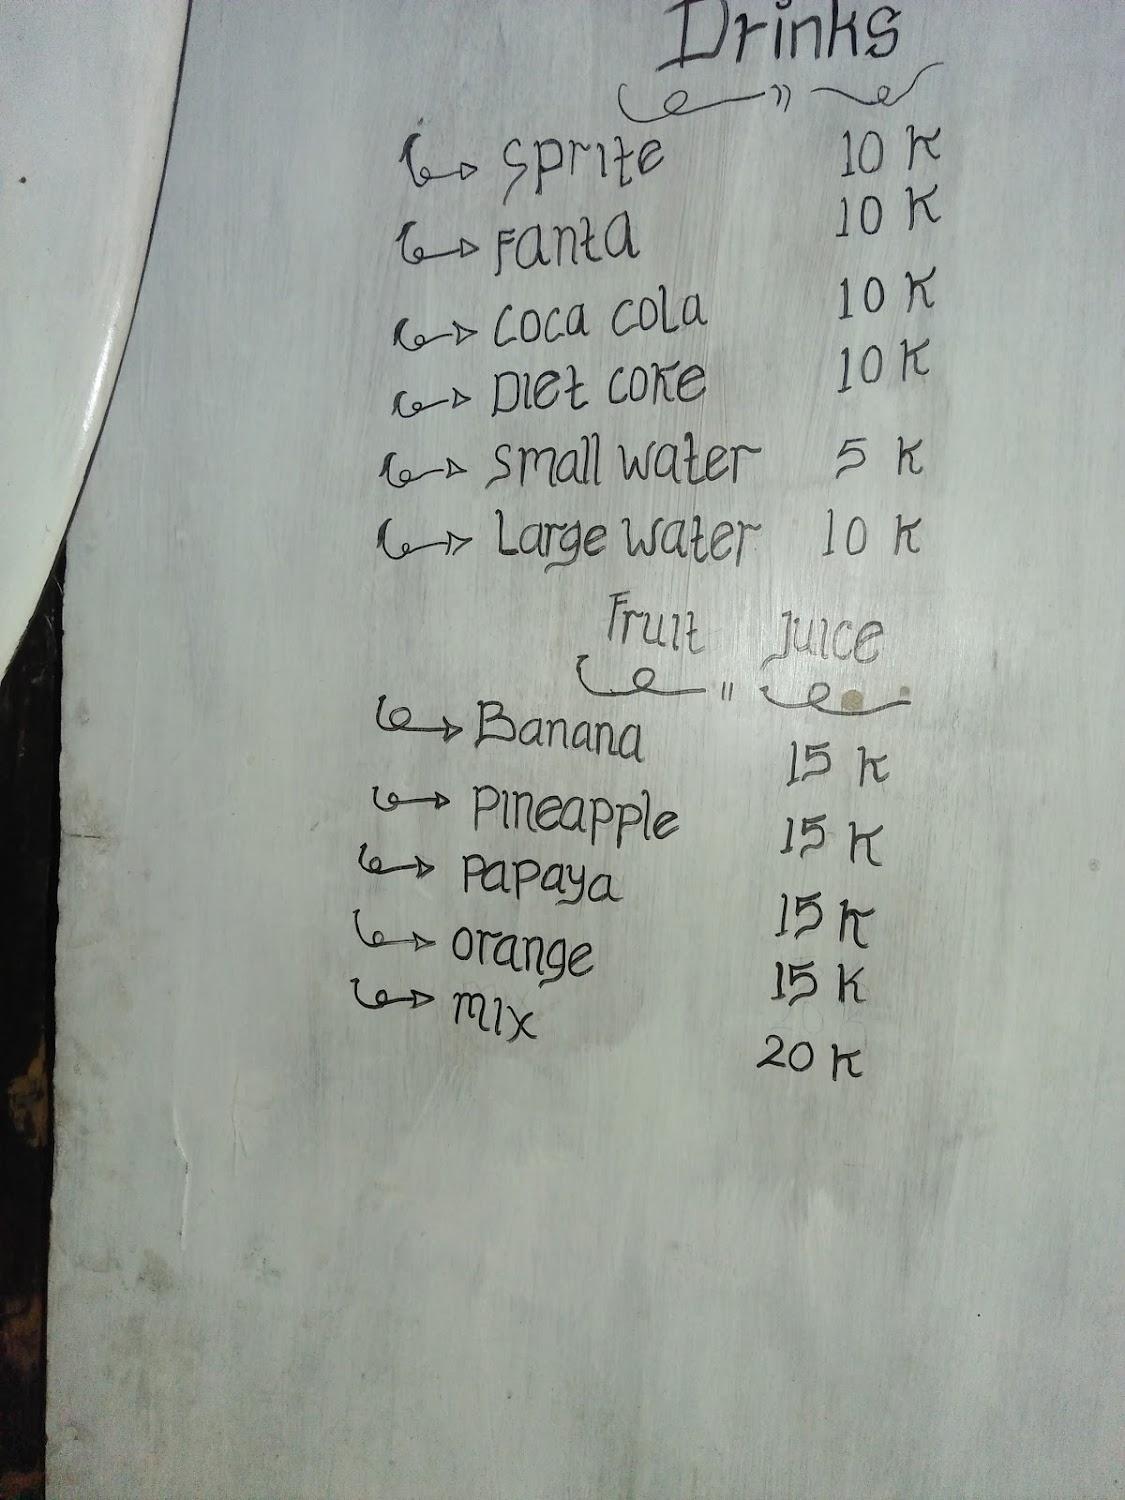 Drinks
Sprite 10 K
Fanta 10 K
coca cola 10 K
Diet coke 10 K
small water 5 K
Large water 10 K
Fruit Juice
Banana 15 K
pineapple 15 K
papaya 15 K
orange 15 K
mix 20 K